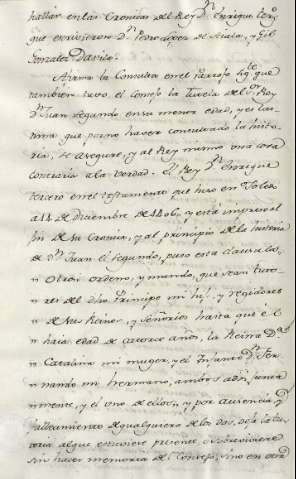 hallar en las Cronicas del Rey Dⁿ. Enrique 3ero.
que escrivieron Dⁿ. Pedro Lopez de Aiala, y Gil
Gonzalez Davila.
Afirma la Consulta en el parrafo sigte. que
tambien tuvo el Consejo la Tutela del Sr. Rey
Dⁿ. Juan Segundo en su menor edad, y es las-
tima que por no haver consultado la histo-
ria, se asegure, y al Rey mismo una cosa
contraria a la verdad. El Rey Dⁿ. Enrique
tercero en el testamento que hizo en Toledo
a 24 de Diciembre de 1406, y está impreso al
fin de su Cronica, y al principio de la historia
de Dⁿ. Juan el Segundo, puso esta clausula,
" Otrosi ordeno, y mando, que sean tuto-
" res del dho Principe mi hijo, y regidores
" de sus Reinos, y Señorios hasta que él
" haia edad de catorce años, la Reina Dª.
" Catalina mi muger, y el Infante Dⁿ. Fer-
" nando mi hermano, ambos a dos junta
" mente, y el uno de ellos, y por ausencia, o
fallecimiento de qualquiera de los dos, dejó la tu-
toria al que estuviere presente, o sobreviviere
sin hacer memoria del Consejo, sino en orden